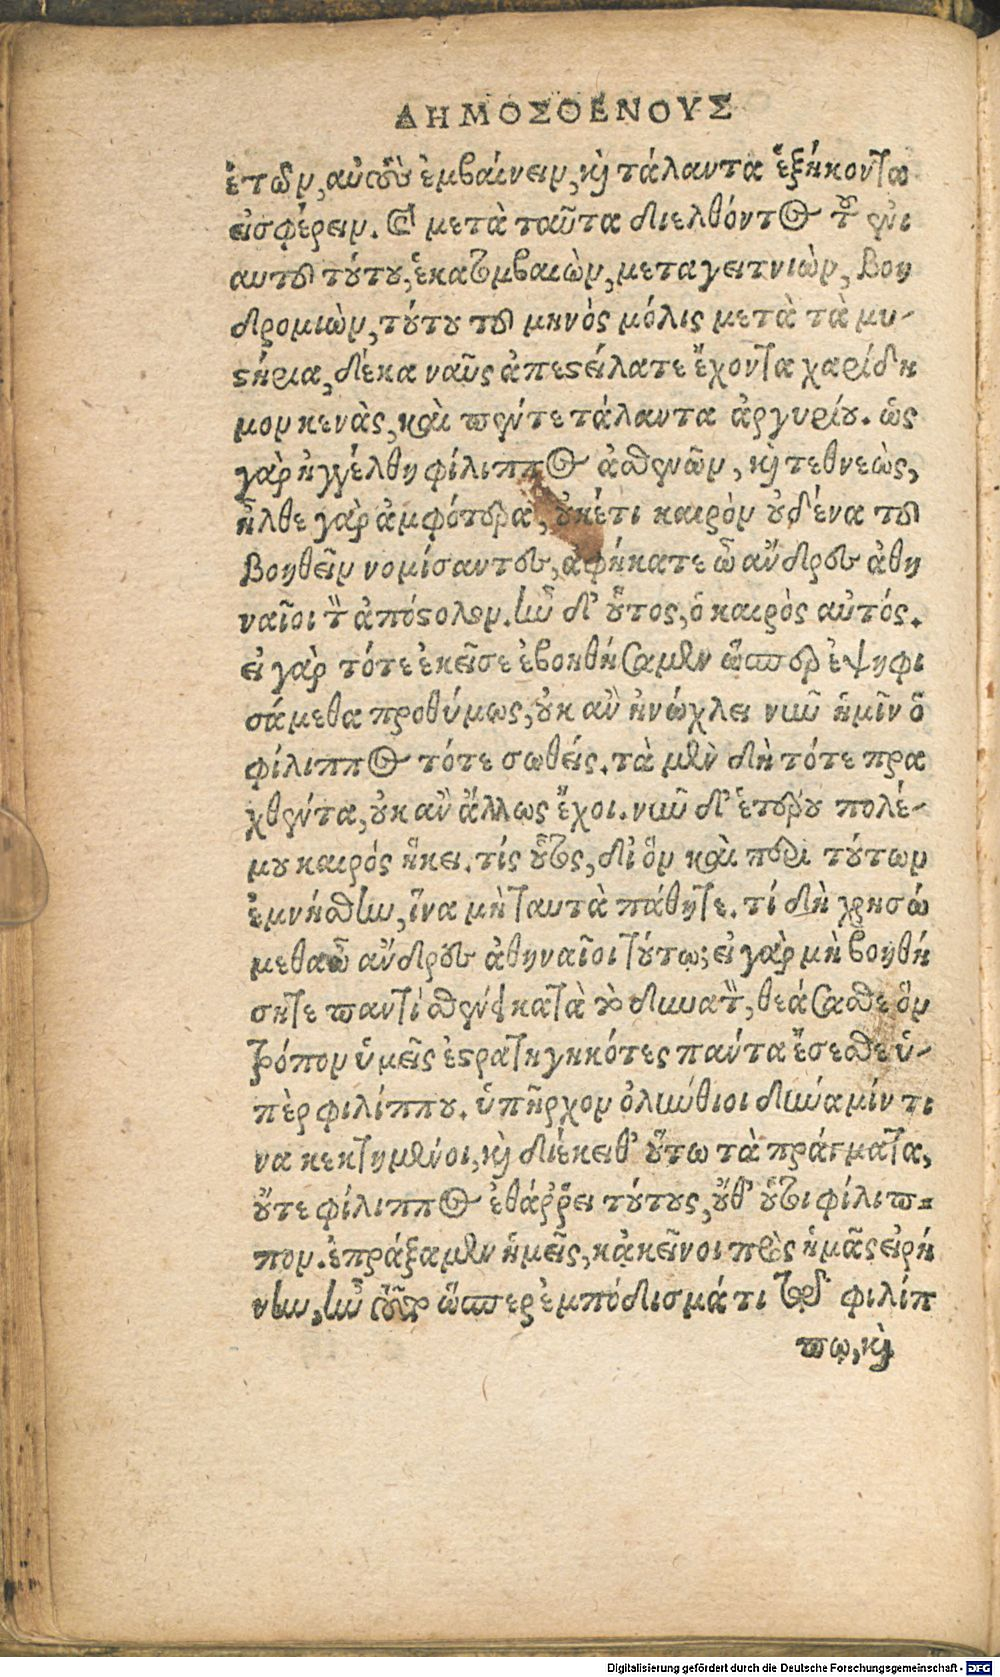 ΔΗΜΟΣΘΕΝΟΥΣ
ἐτῶν, αὐτοὺς ἐμβαίνειν, καὶ τάλαντα ἑξήκοντα
εἰσφέρειν. καὶ μετὰ ταῦτα διελθόντος τοῦ ἐνι
αυτοῦ τούτου, ἑκατομβαιὼν, μεταγειτνιὼν, βοη
δρομιὼν, τούτου τοῦ μηνὸς μόλις μετὰ τὰ μυ-
στήρια, δέκα ναῦς ἀπεστείλατε ἔχοντα χαρίδη
μον κενὰς, καὶ πέντε τάλαντα ἀργυρίου. ὡς
γὰρ ἠγγέλθη φίλιππος ἀσθενῶν, καὶ τεθνεὼς,
ἦλθε γὰρ ἀμφότερα, οὐκέτι καιρὸν οὐδένα τοῦ
βοηθεῖν νομίσαντες, ἀφήκατε ὦ ἄνδρες ἀθη
ναῖοι τὸν ἀπόστολον. ἦν δ' οὗτος, ὁ καιρὸς αὐτός.
εἰ γὰρ τότε ἐκεῖσε ἐβοηθήσαμεν ὥσπερ ἐψηφι
σάμεθα προθύμως, οὐκ ἂν ἠνώχλει νῦν ἡμῖν ὁ
φίλιππος τότε σωθείς. τὰ μὲν δὴ τότε πρα
χθέντα, οὐκ ἂν ἄλλως ἔχοι. νῦν δ' ἑτέρου πολέ-
μου καιρός ἥκει. τίς οὗτος, δι' ὃν καὶ περὶ τούτων
ἐμνήσθην, ἵνα μὴ ταυτὰ πάθητε. τί δὴ χρησώ
μεθα ὦ ἄνδρες ἀθηναῖοι τούτῳ; εἰ γὰρ μὴ βοηθή
σητε παντὶ σθένει κατὰ τὸ δυνατὸν, θεάσασθε ὃν
τρόπον ὑμεῖς ἐστρατηγηκότες πάντα ἔσεσθε ὑ-
πὲρ φιλίππου. ὑπῆρχον ὀλύνθιοι δύναμίν τι
να κεκτημένοι, καὶ διέκειθ' οὕτω τὰ πράγματα,
οὔτε φίλιππος ἐθάῤῥει τούτους, οὔθ' οὗτοι φίλιπ=
πον. ἐπράξαμεν ἡμεῖς, κἀκεῖνοι πρὸς ἡμᾶς εἰρή
νην, ἦν τοῦτο ὥσπερ ἐμπόδισμά τι τῷ φιλίπ
πῳ, καὶ
Digitalisierung gefördert durch die Deutsche Forschungsgemeinschaft - DFG